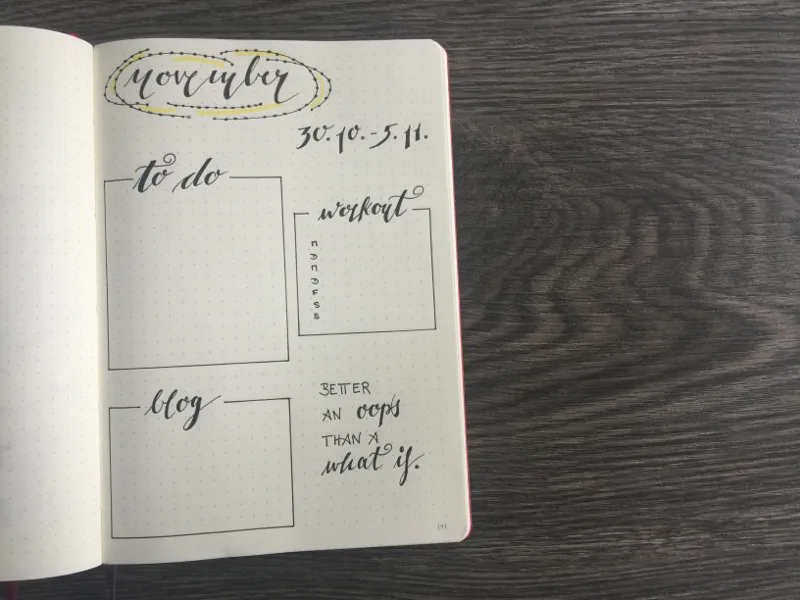 november
30.10.-5.11.
to do
workout
M
D
M
D
F
S
S
blog
BETTER
AN oops
THAN A
what if.